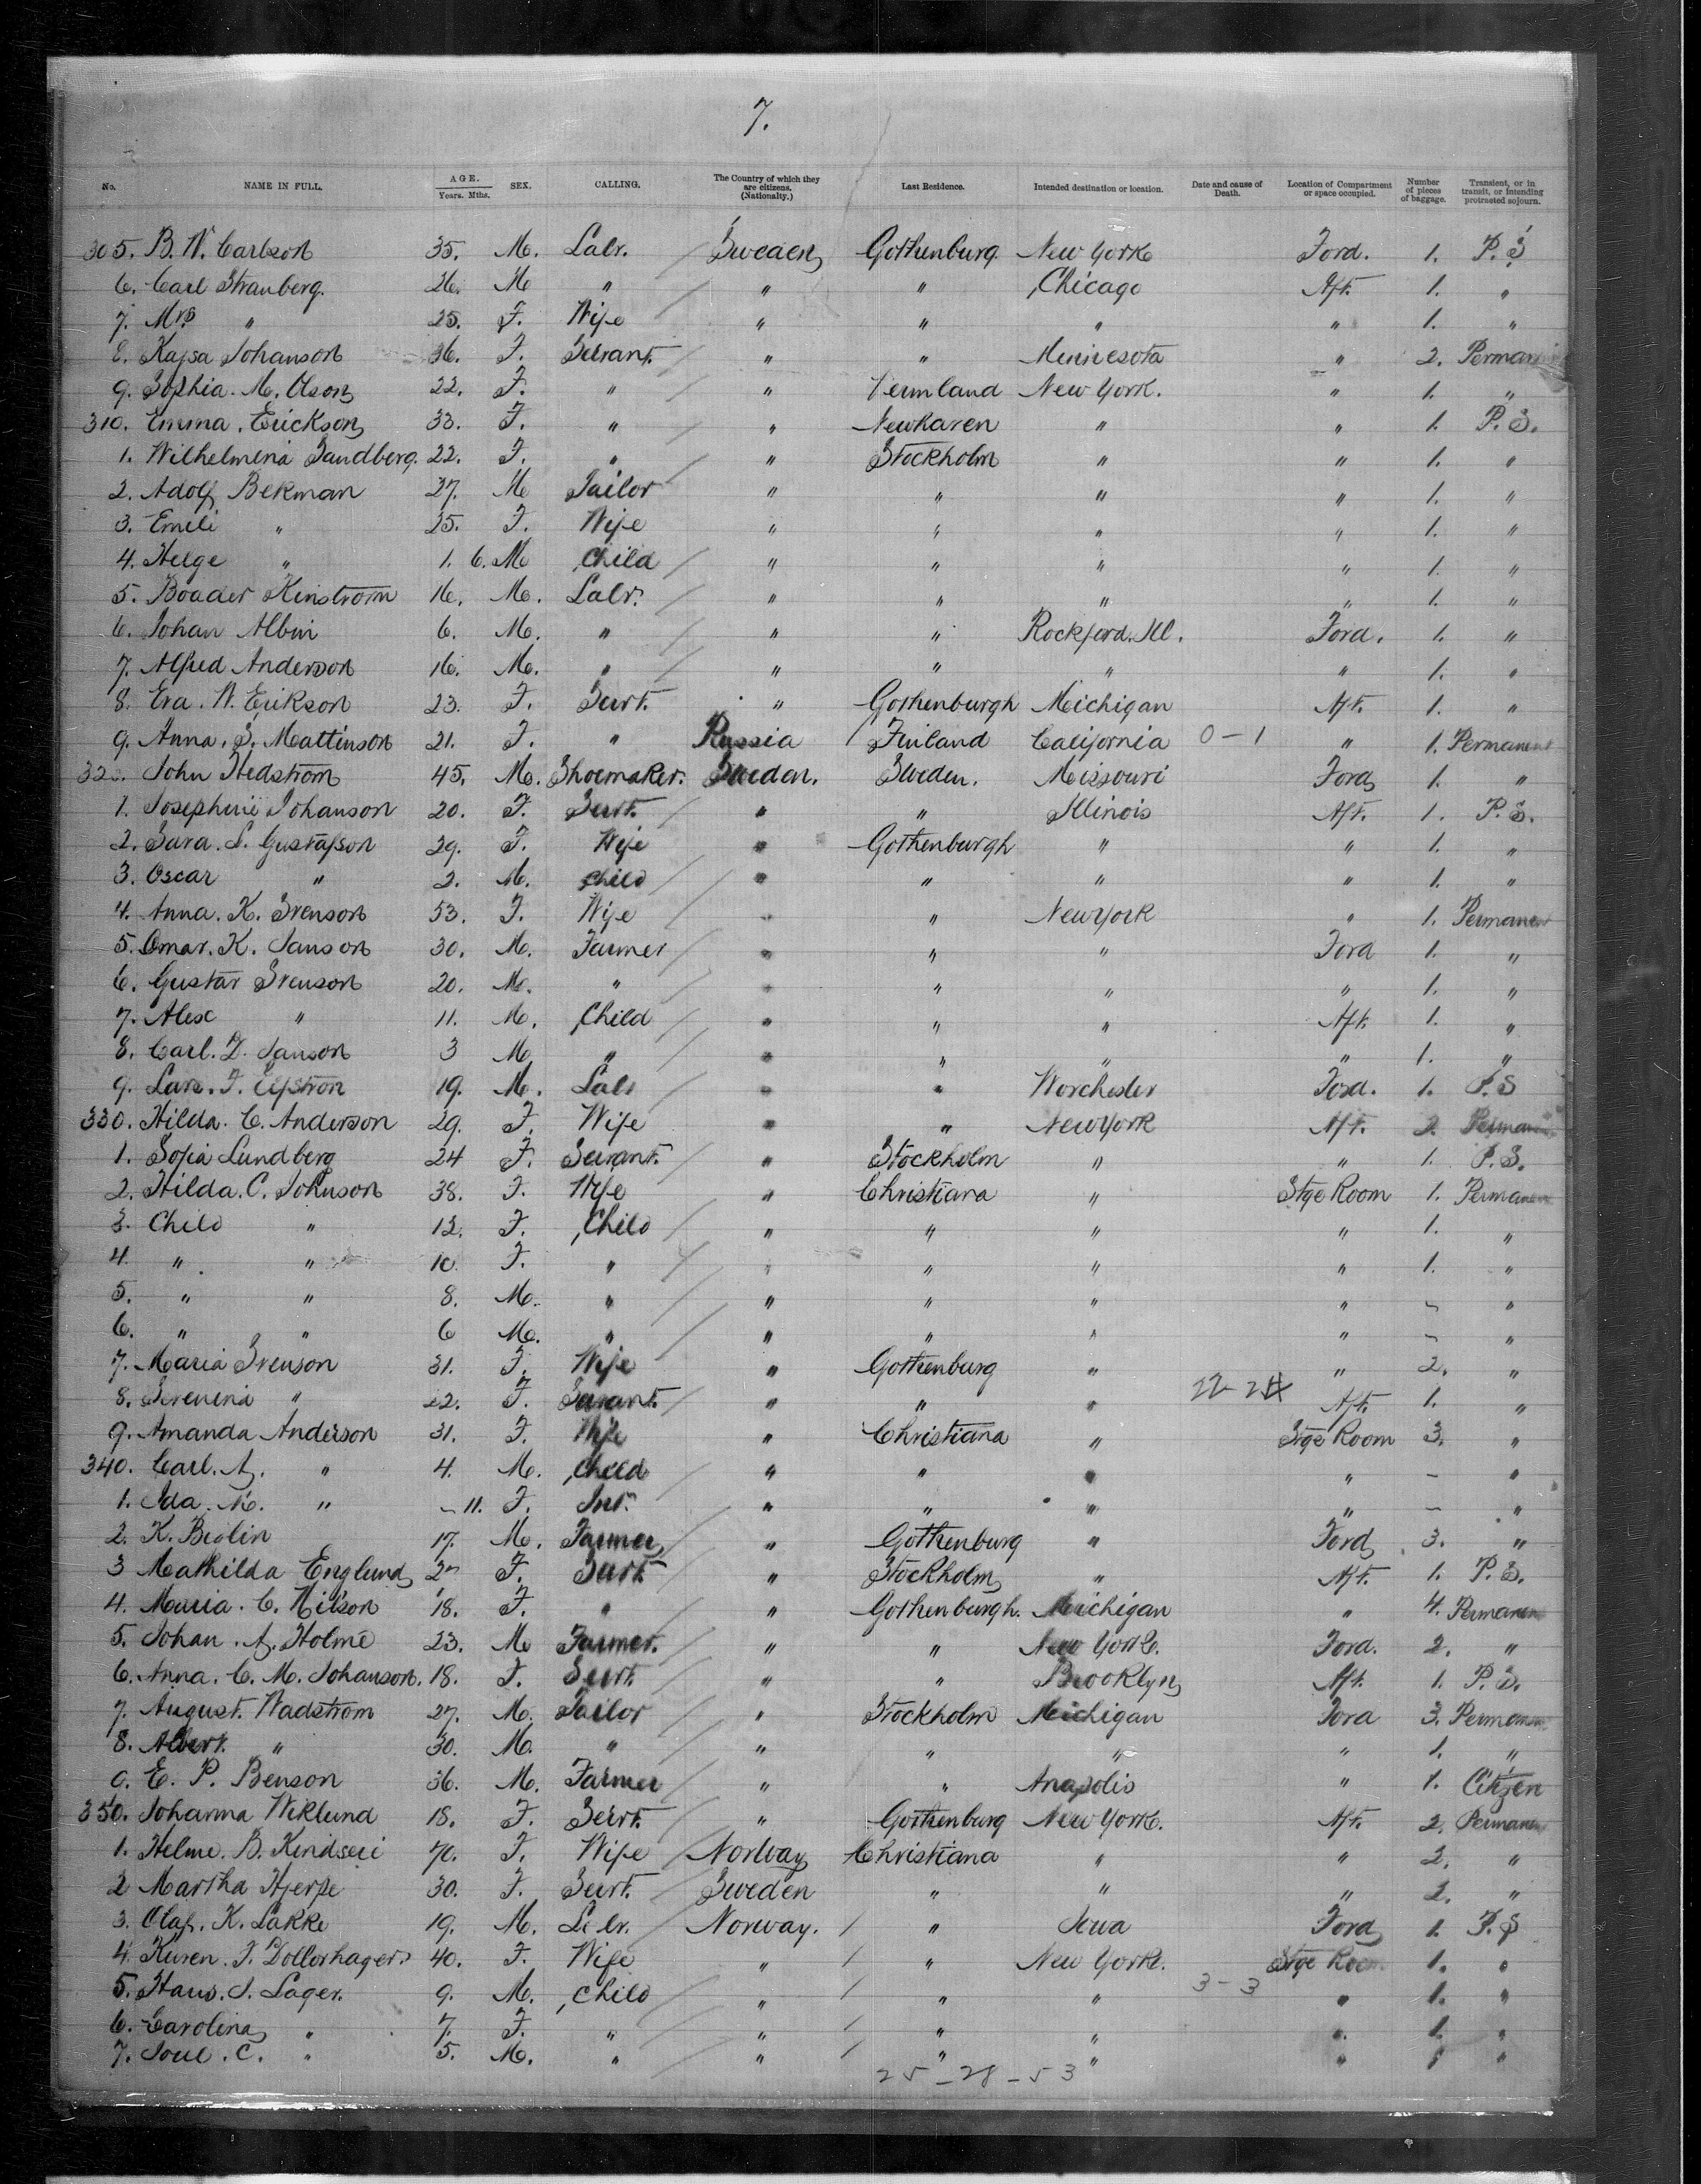 7.
No. NAME IN FULL. AGE. Years. Mths. SEX. CALLING. The Country of which they are citizens. (Nationality.) Last Residence. Intended destination or location. Date and cause of Death. Location of Compartment or space occupied. Number of pieces of baggage. Transient, or in transit, or intending protracted sojourn.
305. B. W. Carlson 35. M. Labr. Sweden Gothenburg New York Ford. 1. P. S
6. Carl Stranberg. 26. M " " " Chicago Aft. 1. "
7. Mrs " 25. F. Wife " " " " 1. "
8. Kajsa Johanson 36. F. Servant. " " Minnesota " 2.
9. Sophia. M. Olson 22. F. " " Vermland New York. " 1. "
310. Emma. Erickson 33. F. " " Newhaven " " 1. P. S.
1. Wilhelmina Sandberg. 22. F. " " Stockholm " " 1. "
2. Adolf Bekman 27. M Tailor " " " " 1. "
3. Emili " 25. F. Wife " " " " 1. "
4. Helge " 1. 6. M Child " " " " 1. "
5. Boader Kinstrom 16. M. Labr. " " " " 1. "
6. Johan Albin 6. M. " " " Rockford. Ill. Ford. 1. "
7. Alfred Anderson 16. M. " " " " " 1. "
8. Eva. W. Erikson 23. F. Servt. " Gothenburgh Michigan Aft. 1. "
9. Anna. S. Mattinson 21. F. " Russia Finland California 0-1 " 1. Permanent
320. John Hedstrom 45. M. Shoemaker. Sweden. Sweden. Missouri Ford 1. "
1. Josephine Johanson 20. F. Servt. " " Illinois Aft. 1. P. S.
2. Sara. S. Gustafson 29. F. Wife " Gothenburgh " " 1. "
3. Oscar " 2. M. Child " " " " 1. "
4. Anna. K. Svenson 53. F. Wife " " New York " 1. Permanent
5. Omar. K. Janson 30. M. Farmer " " " Ford 1. "
6. Gustav Svenson 20. M. " " " " " 1. "
7. Alex " 11. M. Child " " " Aft. 1. "
8. Carl. D. Janson 3 M " " " " " 1. "
9. Lars. F. Elfstron 19. M. Labr " " Worchester Ford. 1. P. S
330. Hilda. C. Anderson 29. F. Wife " " New York Aft. 2.
1. Sofia Lundberg 24 F. Servant. " Stockholm " " 1. P. S.
2. Hilda. C. Johnson 38. F. Wife " Christiana " Stge Room 1. Permanent
3. Child " 12. F. Child " " " " 1. "
4. " " 10. F. " " " " " 1. "
5. " " 8. M. " " " " " - "
6. " " 6 M. " " " " " - "
7. Maria Svenson 31. F. Wife " Gothenburg " " 2. "
8. Severina " 22. F. Servant. " " " 22-24 Aft. 1. "
9. Amanda Anderson 31. F. Wife " Christiana " Stge Room 3. "
340. Carl. A. " 4. M. Child " " " " - "
1. Ida. M. " - 11. F. Inf. " " " " - "
2. K. Biolin 17. M. Farmer " Gothenburg " Ford 3. "
3 Mathilda Englund F. Servt. " Stockholm " Aft. 1. P. S.
4. Maria. C. Nilson 18. F. " " Gothenburgh. Michigan " 4. Permanent
5. Johan. A. Holme 23. M Farmer. " " New York. Ford. 2. "
6. Anna. C. M. Johanson. 18. F. Servt. " " Brooklyn Aft. 1. P. S.
7. August. Wadstrom 27. M. Tailor " Stockholm Michigan Ford 3. Permanent
8. Albert. " 30. M. " " " " " 1. "
9. E. P. Benson 36. M. Farmer " " Anapolis " 1. Citizen
350. Johanna Wiklund 18. F. Servt. " Gothenburg New York. Aft. 2. Permanent
1. Helme. B. Kindseii 70. F. Wife Norway Christiana " " 2. "
2 Martha Hjerpe 30. F. Servt. Sweden " " " 2. "
3. Olaf. K. Lakke 19. M. Labr. Norway. " Iowa Ford 1. P. S
4. Karen. F. Dollorhager. 40. F. Wife " " New York. Stge Room 1. "
5. Hans. J. Lager. 9. M. Child " " " 3-3 " 1. "
6. Carolina " 7. F. " " " " " 1. "
7. C. " 5. M. " " " " " 1 "
25-28-53